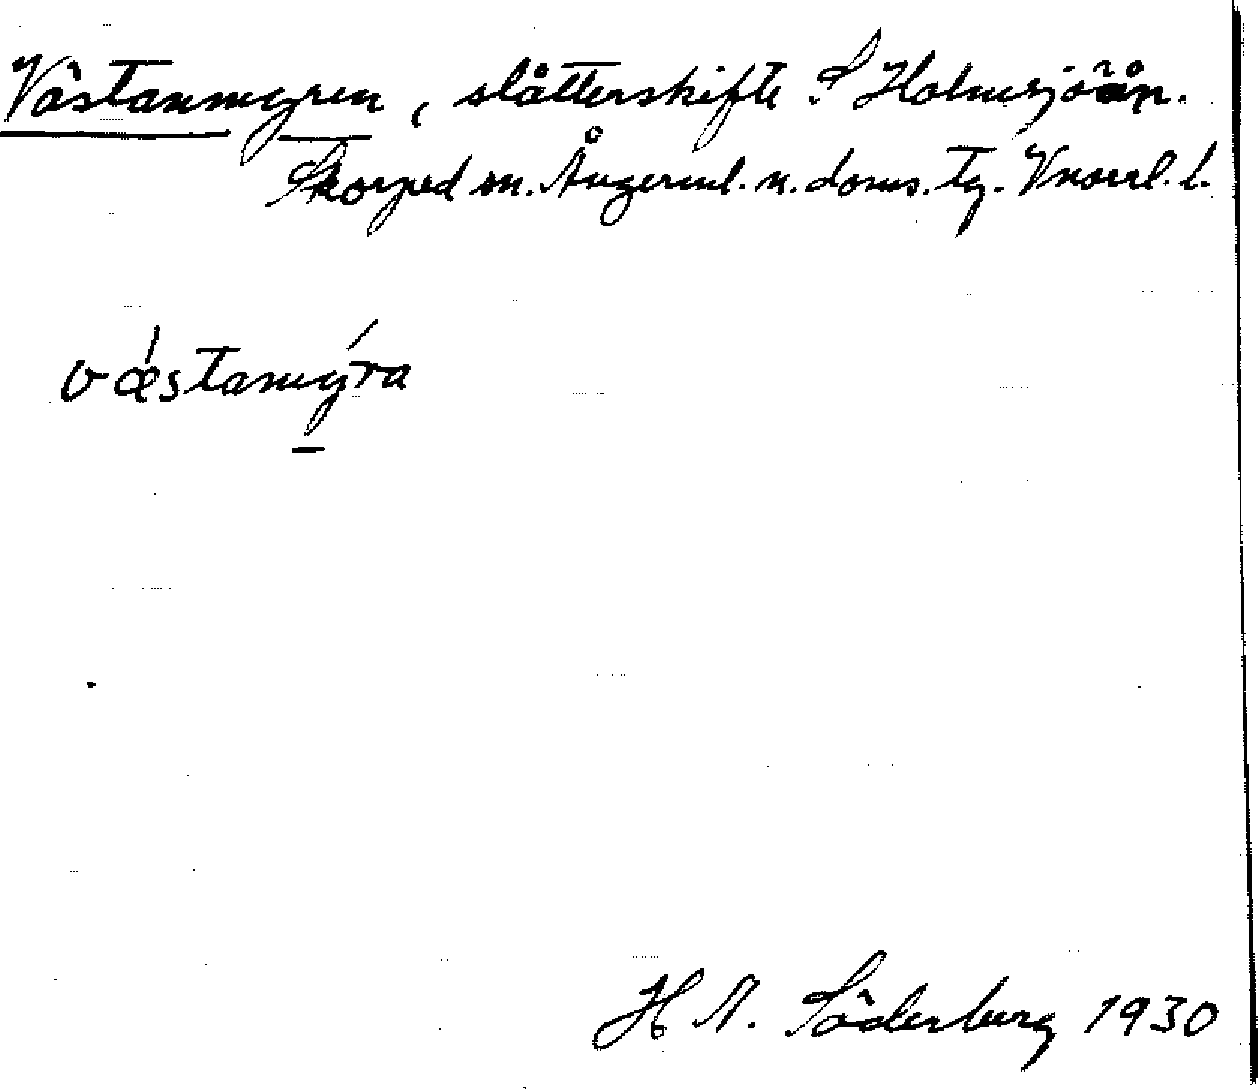 Västanmyren, slåtterskifte S Holmsjöån.
Skorped sn. Ångerml. n. doms. tg. Vnorrl. l.
væ´stanmy´ra
H A. Söderberg 1930